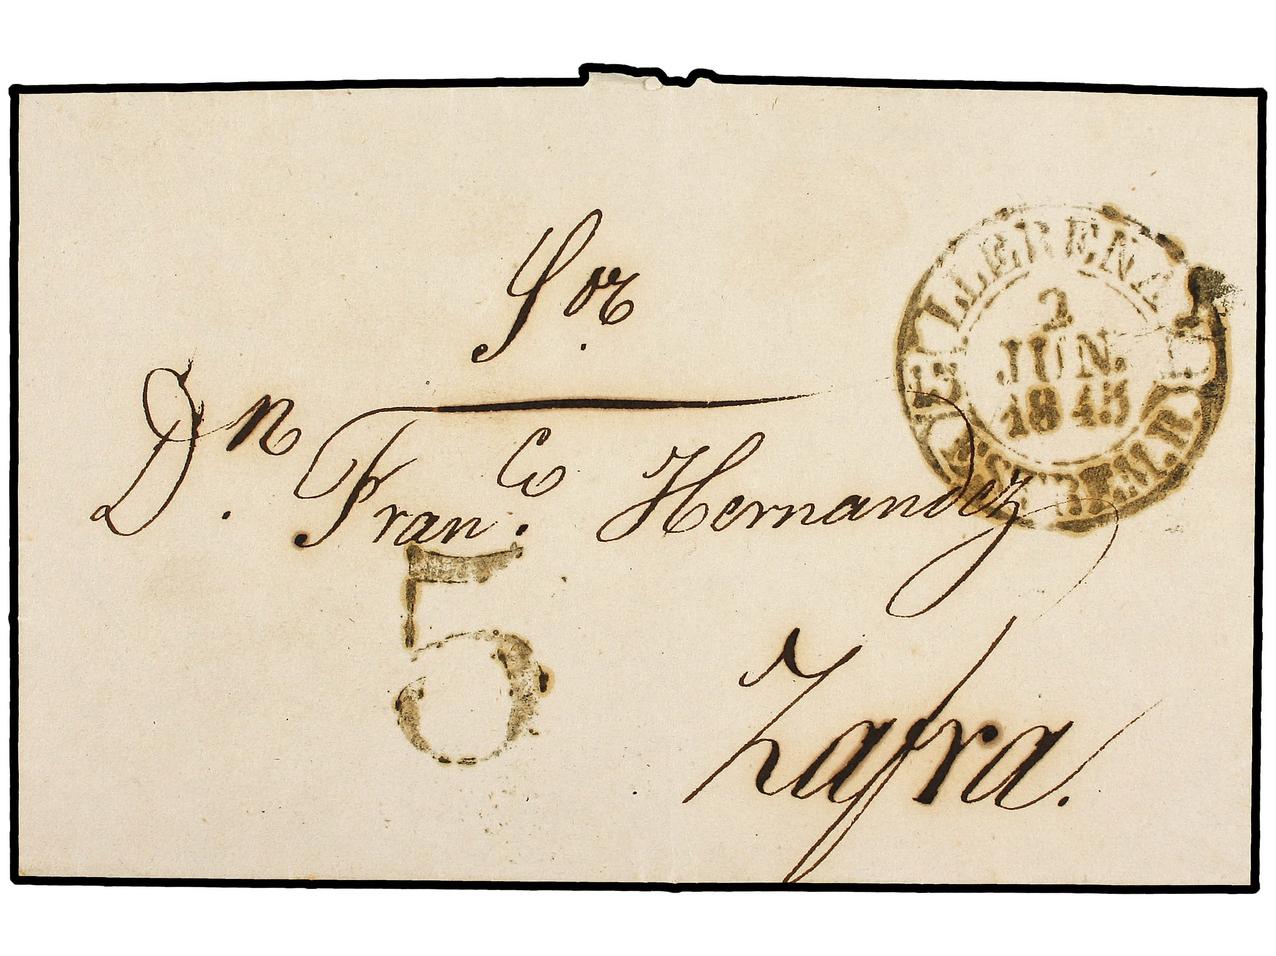 Sor.
Dn. Fran.co Hernandez
Zafra.
LLERENA
2
JUN.
1845
ESTREM.R.
5